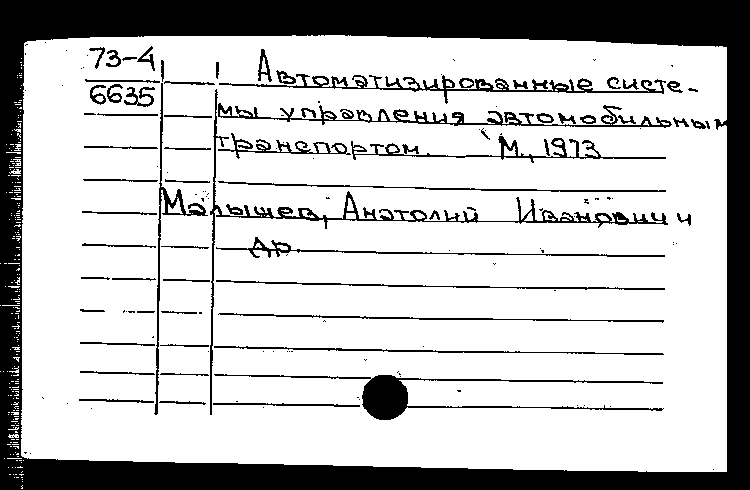 73-4
Автоматизированные систе-
6635
мы управления автомобильным
транспортом. М., 1973
Малышев, Анатолий Иванович и
др.